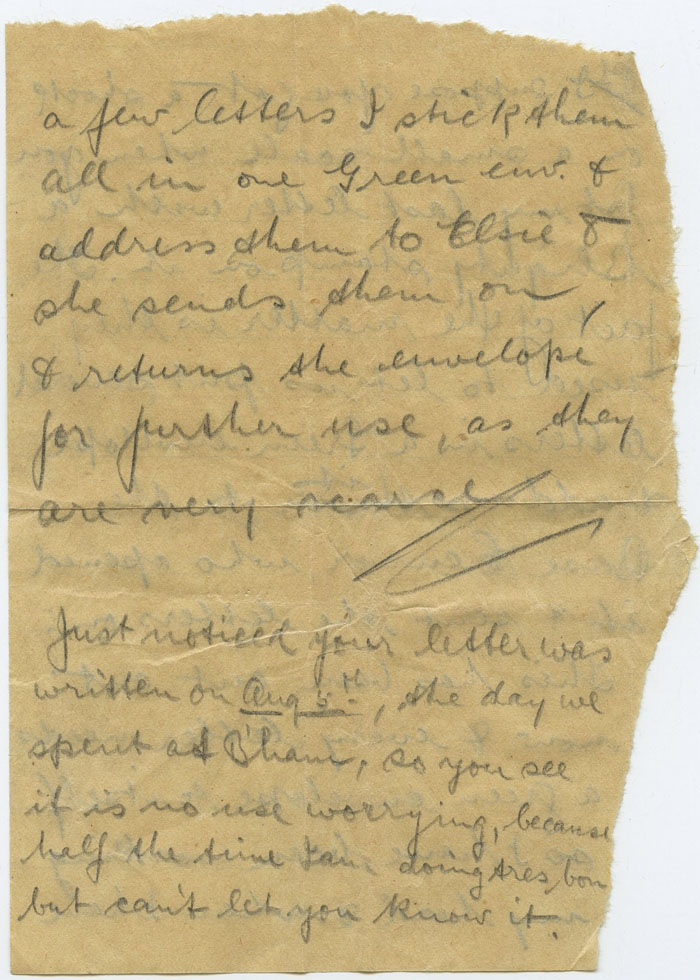 a few letters I stick them
all in one Green env. &
address them to Elsie &
she sends them on,
& returns the envelope
for further use, as they
are very scarce
Just noticed your letter was
written on Aug 5th, the day we
spent at B'ham, so you see
it is no use worrying, because
half the time I am doing tres bon
but can't let you know it.